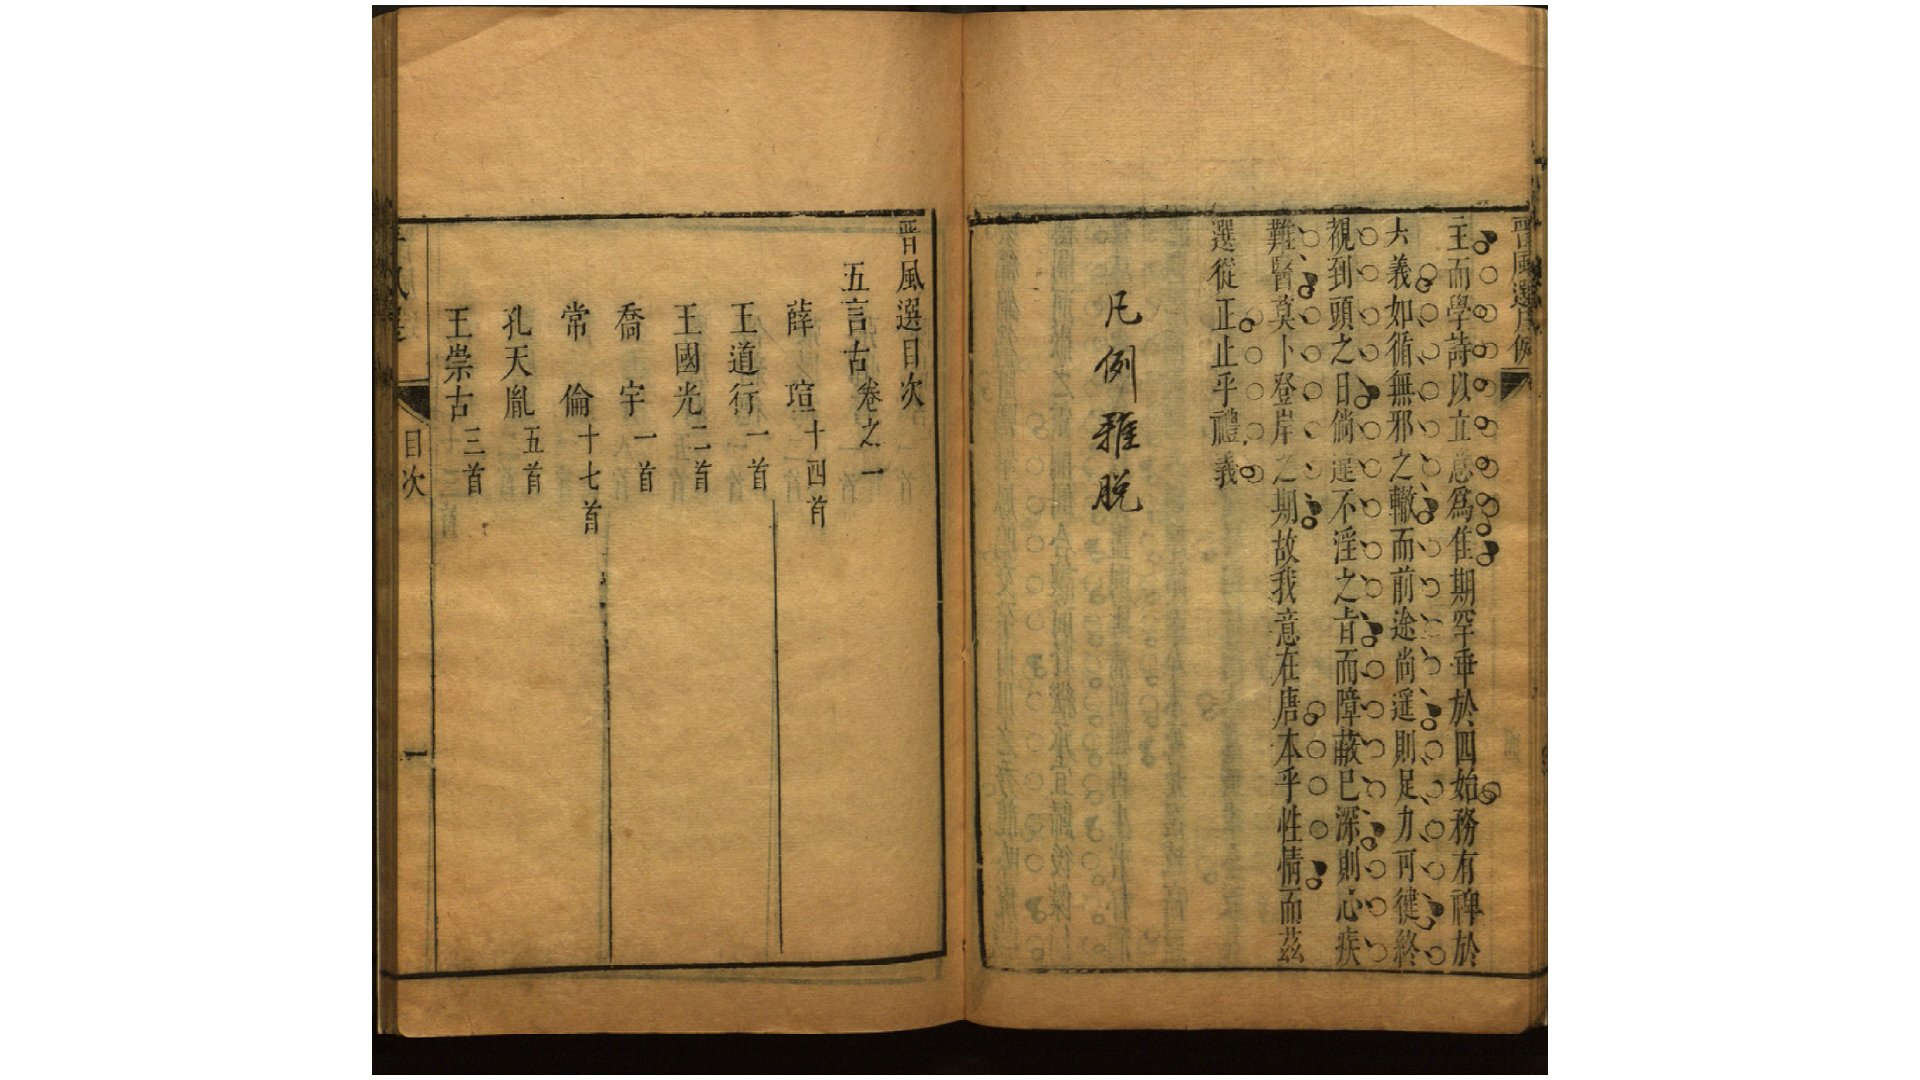 晋風選凡例
主而學詩以立意爲隹期罕垂於四始務有裨於
六義如循無邪之轍而前途尚遥則足力可健終
覩到頭之日倘逞不淫之㫖而障蔽已深則心疾
難醫莫卜登岸之期故我意在唐本乎性情而茲
選從正止乎禮義
凡例雅脱
晋風選目次
五言古卷之一
薛瑄十四首
王道行一首
王國光二首
喬宇一首
常倫十七首
孔天胤五首
王崇古三首
目次
一